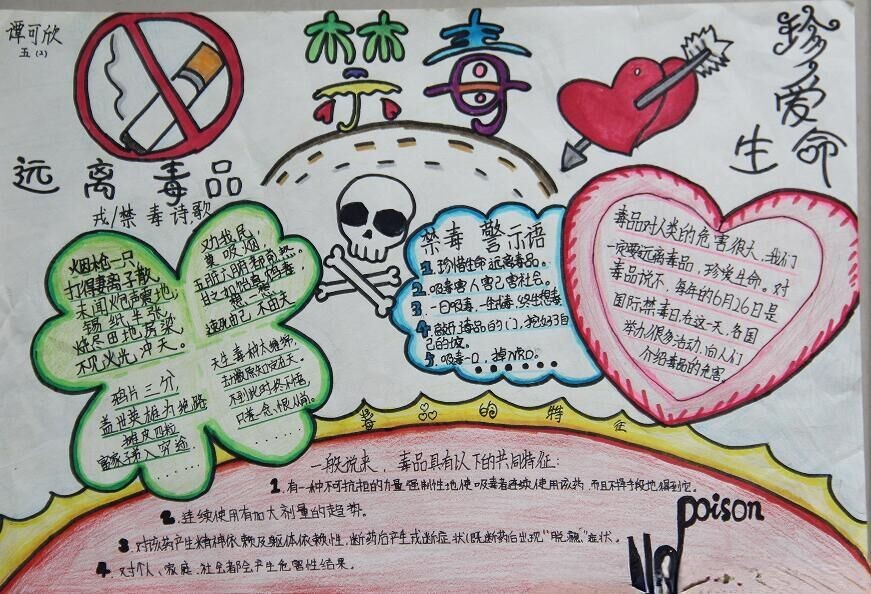 谭可欣
五(2)
禁毒
珍爱
生命
远离毒品
戒/禁毒诗歌
烟枪一只
打得妻离子散
未闻炮声震地
锡纸半张
烧尽田地房梁
不见火光冲天。
劝我民
莫吸烟
五脏六腑
鸦片三分,
盖世英雄为绝路
摊皮四粒
富家子弟入穷途
......
......
禁毒警示语
1、珍惜生命远离毒品。
2、吸毒害人害己害社会。
3、一日吸毒,一生悔,终生想毒
4、敲开毒品的门,挖好了自
己的坟。
5、吸毒一口,掉
......
毒品对人类的危害很大,我们
一定要远离毒品,珍爱生命。对
毒品说不、每年的6月26日是
国际禁毒日,在这一天,各国
举办很多活动,向人们
介绍毒品的危害。
毒品的特征
一般说来,毒品具有以下的共同特征:
1、有一种不可抗拒的力量强制性地使吸毒者连续使用该药,而且不择手段地得到它。
2、连续使用有加大剂量的趋势。
3、对该药产生精神依赖及躯体依赖性,断药后产生戒断症状(既断药后出现“脱瘾”症状。
4、对个人、家庭、社会都会产生危害性结果。
poison